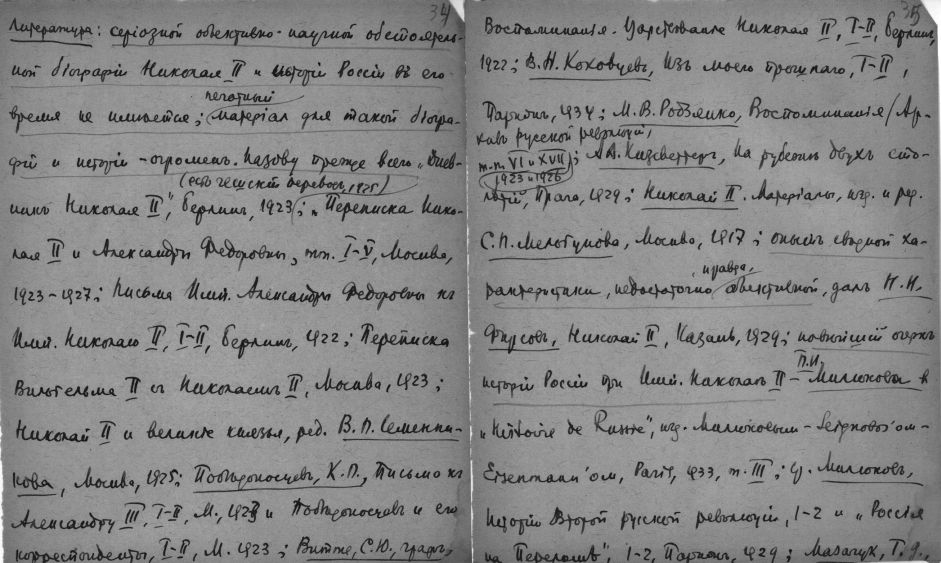 34
Литература: серіозной объективно-научной обстоятель-
ной біографіи Николая II и исторіи Россіи въ его
печатный
время не имѣется; матеріал для такой біогра-
фіи и исторіи - огромен. Назову прежде всего „Днев-
(есть чешскій перевод, 1925)
никъ Николая II", Берлин, 1923; „Переписка Нико-
лая II и Александры Федоровны, тт. I-V, Москва,
1923-1927; Письма Имп. Александры Федоровны къ
Имп. Николаю II, I-II, Берлин, 1922; Переписка
Вильгельма II съ Николаемъ II, Москва, 1923;
Николай II и великіе князья, ред. В. П. Семенни-
кова, Москва, 1925; Побѣдоносцевъ, К.П., Письма къ
Александру III, I-II, М., и Побѣдоносцевъ и его
корреспонденты, I-II, М. 1923; Витте, С.Ю., графъ,
35
Воспоминанія. Царствованіе Николая II, I-II, Берлин,
1922; В.Н. Коковцевъ, Изъ моего прошлаго, I-II,
Париж, 1934; М. В. Родзянко, Воспоминанія /Ар-
хивъ русской революціи,
т.т. VI и XVII
1923 и 1926
; А.А. Кизеветтеръ, На рубежѣ двухъ сто-
лѣтій, Прага, 1929; Николай II. Матеріалы, изд. и ред.
С. П. Мельгунова, Москва, 1917; опытъ сводной ха-
правда,
рактеристики, недостаточно объективной, далъ Н. Н.
Фирсовъ, Николай II, Казань, 1929; новѣйшій очеркъ
П.Н.
исторіи Россіи при Имп. Николаѣ II - Милюкова в
„Histoire de Russie", изд. Милюковым - Seignobos'ом -
Eisenmann'ом, Paris, 1933, т. III; ср. Милюковъ,
Исторія Второй русской революціи, 1-2 и „Россія
на Переломѣ", 1-2, Париж, 1929; Масарик, Т. Г.,